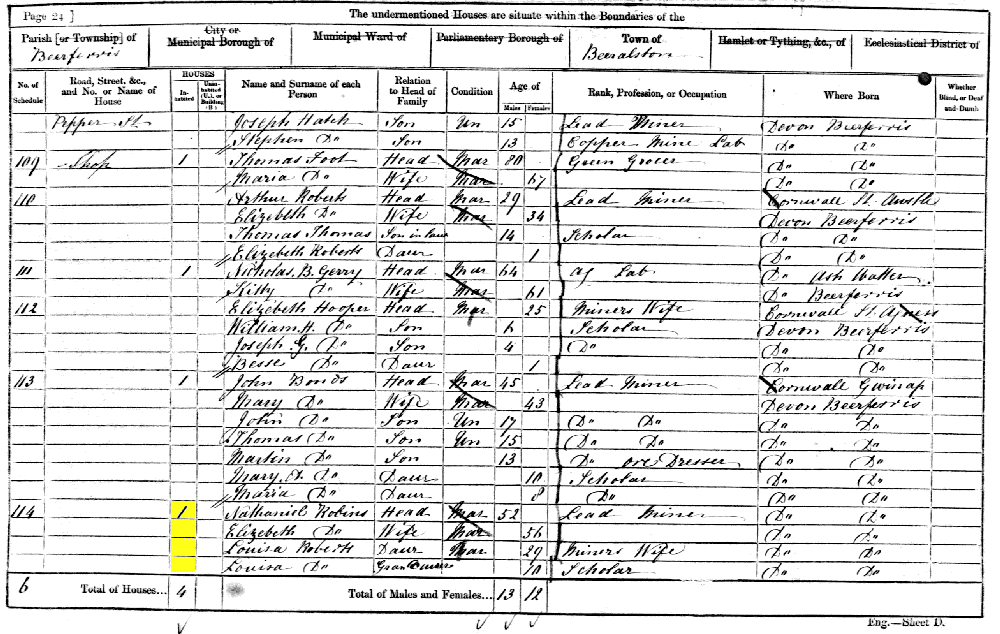 Page 24] The undermentioned Houses are situate within the Boundaries of the
Parish [or Township] of City or Municipal Borough of Municipal Ward of Parliamentary Borough of Town of Hamlet or Tything, &c., of Ecclesiastical District of
Beerferris Beeralston
No. of Schedule Road, Street, &c., and No. or Name of House HOUSES In-habited Unin-habited (U.), or Building (B.) Name and Surname of each Person Relation to Head of Family Condition Age of Males Females Rank, Profession, or Occupation Where Born Whether Blind, or Deaf and-Dumb
Pepper St. Joseph Hatch Son Un 15 Lead Miner Devon Beerferris
Stephen Do Son 13 Copper Mine Lab Do Do
109 Shop 1 Thomas Foot Head Mar 80 Green Grocer Do Do
Maria Do Wife Mar 67 Do Do
110 Arthur Roberts Head Mar 29 Lead Miner Cornwall St. Austle
Elizebeth Do Wife Mar 34 Devon Beerferris
Thomas Thomas Son in law 14 Scholar Do Do
Elizebeth Roberts Daur 1 Do Do
111 1 Nicholas B. Gerry Head Mar 64 Ag Lab Do Ash Watter
Kitty Do Wife Mar 61 Do Beerferris
112 Elizebeth Hooper Head Mar 25 Miners Wife Cornwall St. Agness
William H. Do Son 6 Scholar Devon Beerferris
Joseph G. Do Son 4 Do Do Do
Besse Do Daur 1 Do Do
113 1 John Bonds Head Mar 45 Lead Miner Cornwall Gwinap
Mary Do Wife Mar 43 Devon Beerferris
John Do Son Un 17 Do Do Do Do
Thomas Do Son Un 15 Do Do Do Do
Martin Do Son 13 Do ore Dresser Do Do
Mary A. Do Daur 10 Scholar Do Do
Maria Do Daur 8 Do Do Do
114 1 Nathaniel Robins Head Mar 52 Lead Miner Do Do
Elizebeth Do Wife Mar 56 Do Do
Louisa Roberts Daur Mar 29 Miners Wife Do Do
Louisa Do 10 Scholar Do Do
6 Total of Houses... 4 Total of Males and Females... 13 12
Eng.—Sheet D.